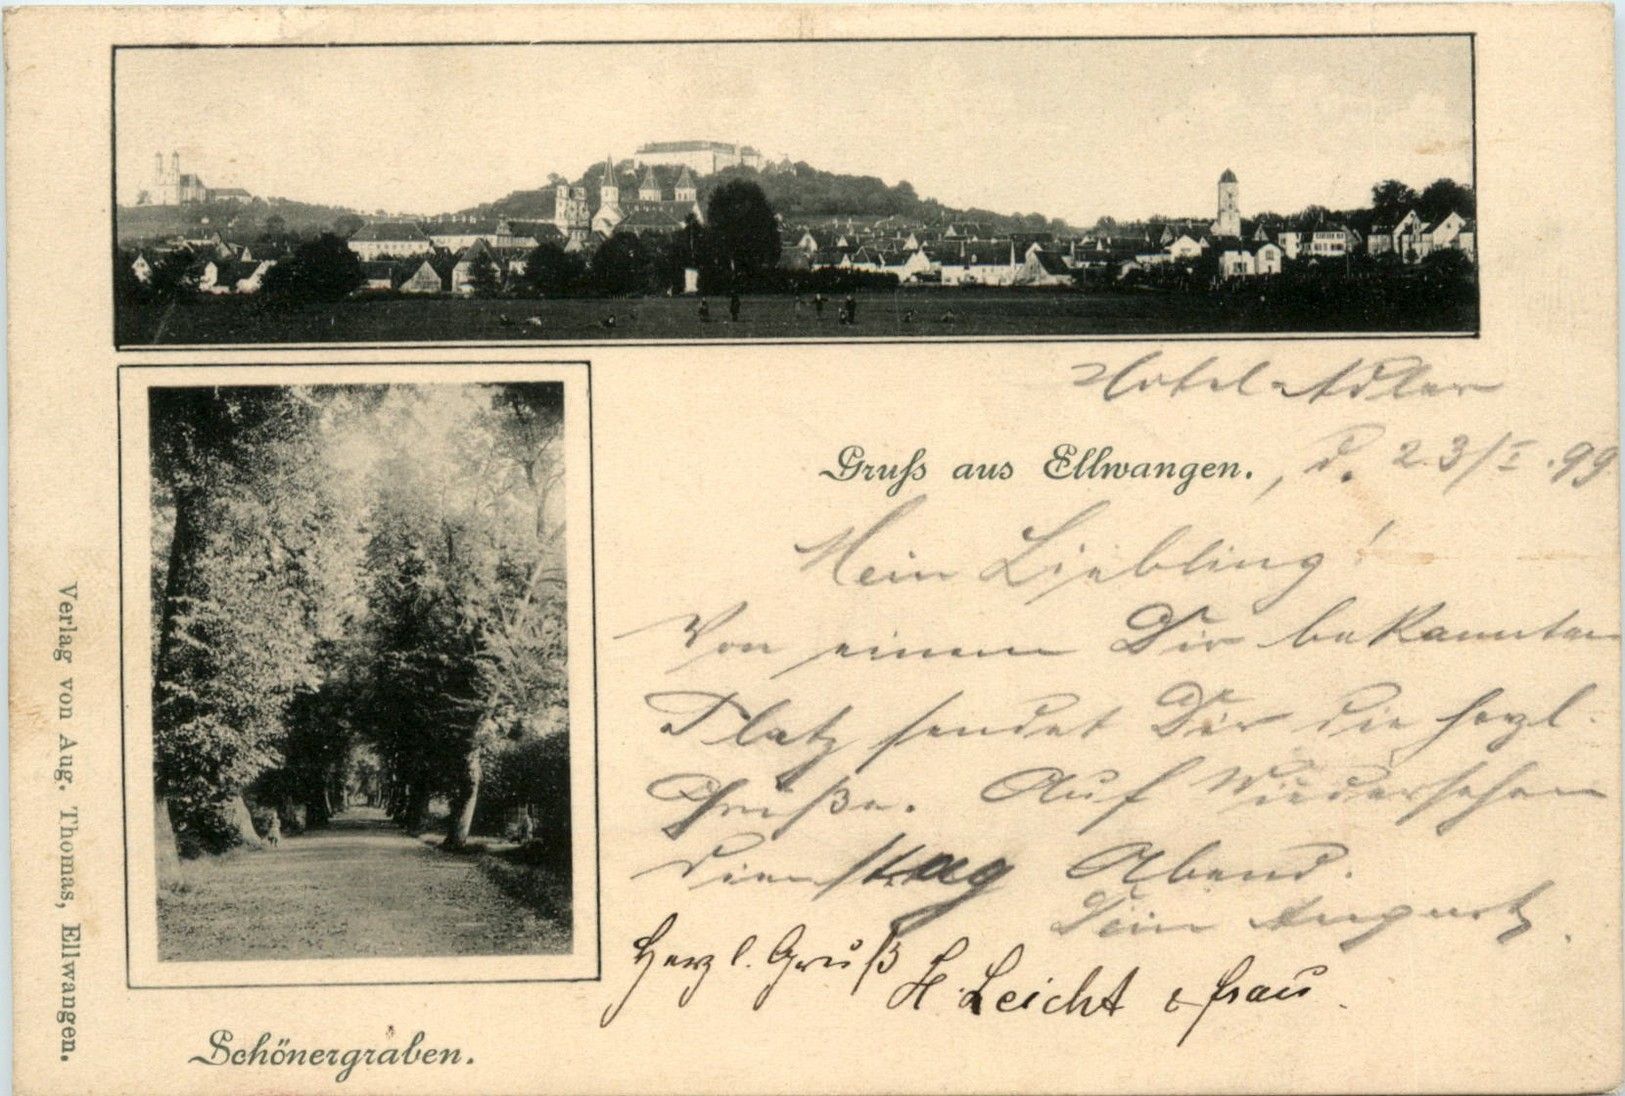 Hotel Adler
Gruss aus Ellwangen. , d. 23/I. 99
Mein Liebling!
Von einem Dir bekannten
Platz sendet Dir die herzl.
Grüße. Auf Wiedersehen
Dienstag Abend.
Dein August.
Herzl. Gruß H. Leicht & Frau.
Schönergraben.
Verlag von Aug. Thomas, Ellwangen.